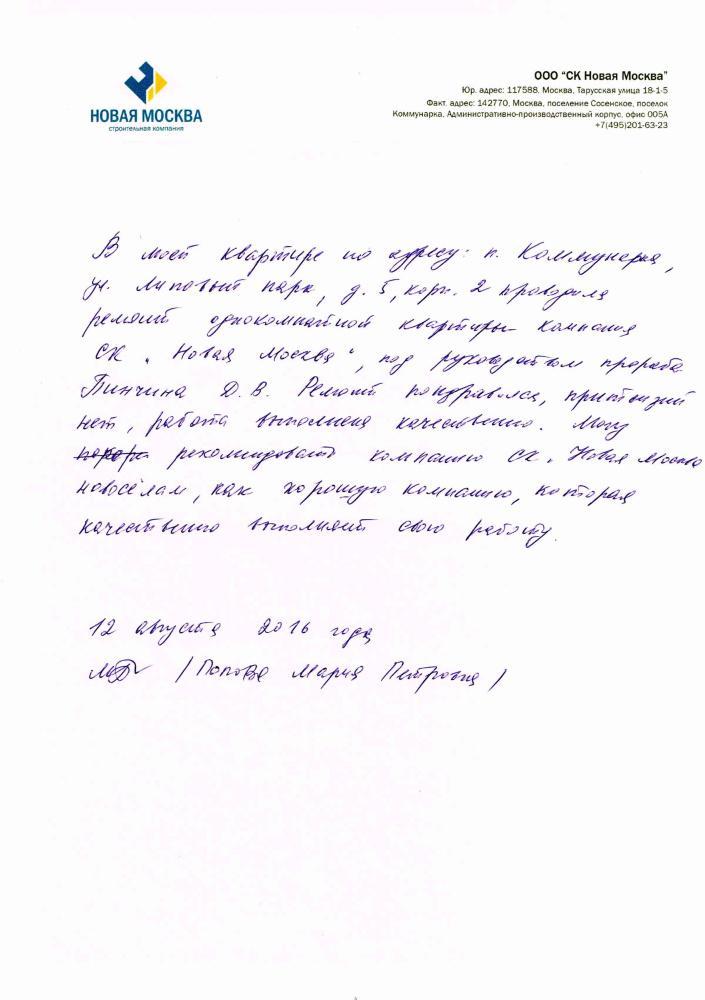 НОВАЯ МОСКВА
строительная компания
ООО "СК Новая Москва"
Юр. адрес: 117588, Москва, Тарусская улица 18-1-5
Факт. адрес: 142770, Москва, поселение Сосенское, поселок
Коммунарка, Административно-производственный корпус, офис 005А
+7(495)201-63-23
В моей квартире по адресу: п. Коммунарка,
ул. Липовый парк, д. 5, корп. 2 проводила
ремонт однокомнатной квартиры компания
СК "Новая Москва", под руководством прораба
Пинчина Д. В. Ремонт понравился, притензий
нет, работа выполнена качественно. Могу
рекомендовать компанию СК "Новая Москва
новосёлам, как хорошую компанию, которая
качественно выполняет свою работу.
12 августа 2016 года
/Попова Мария Петровна/